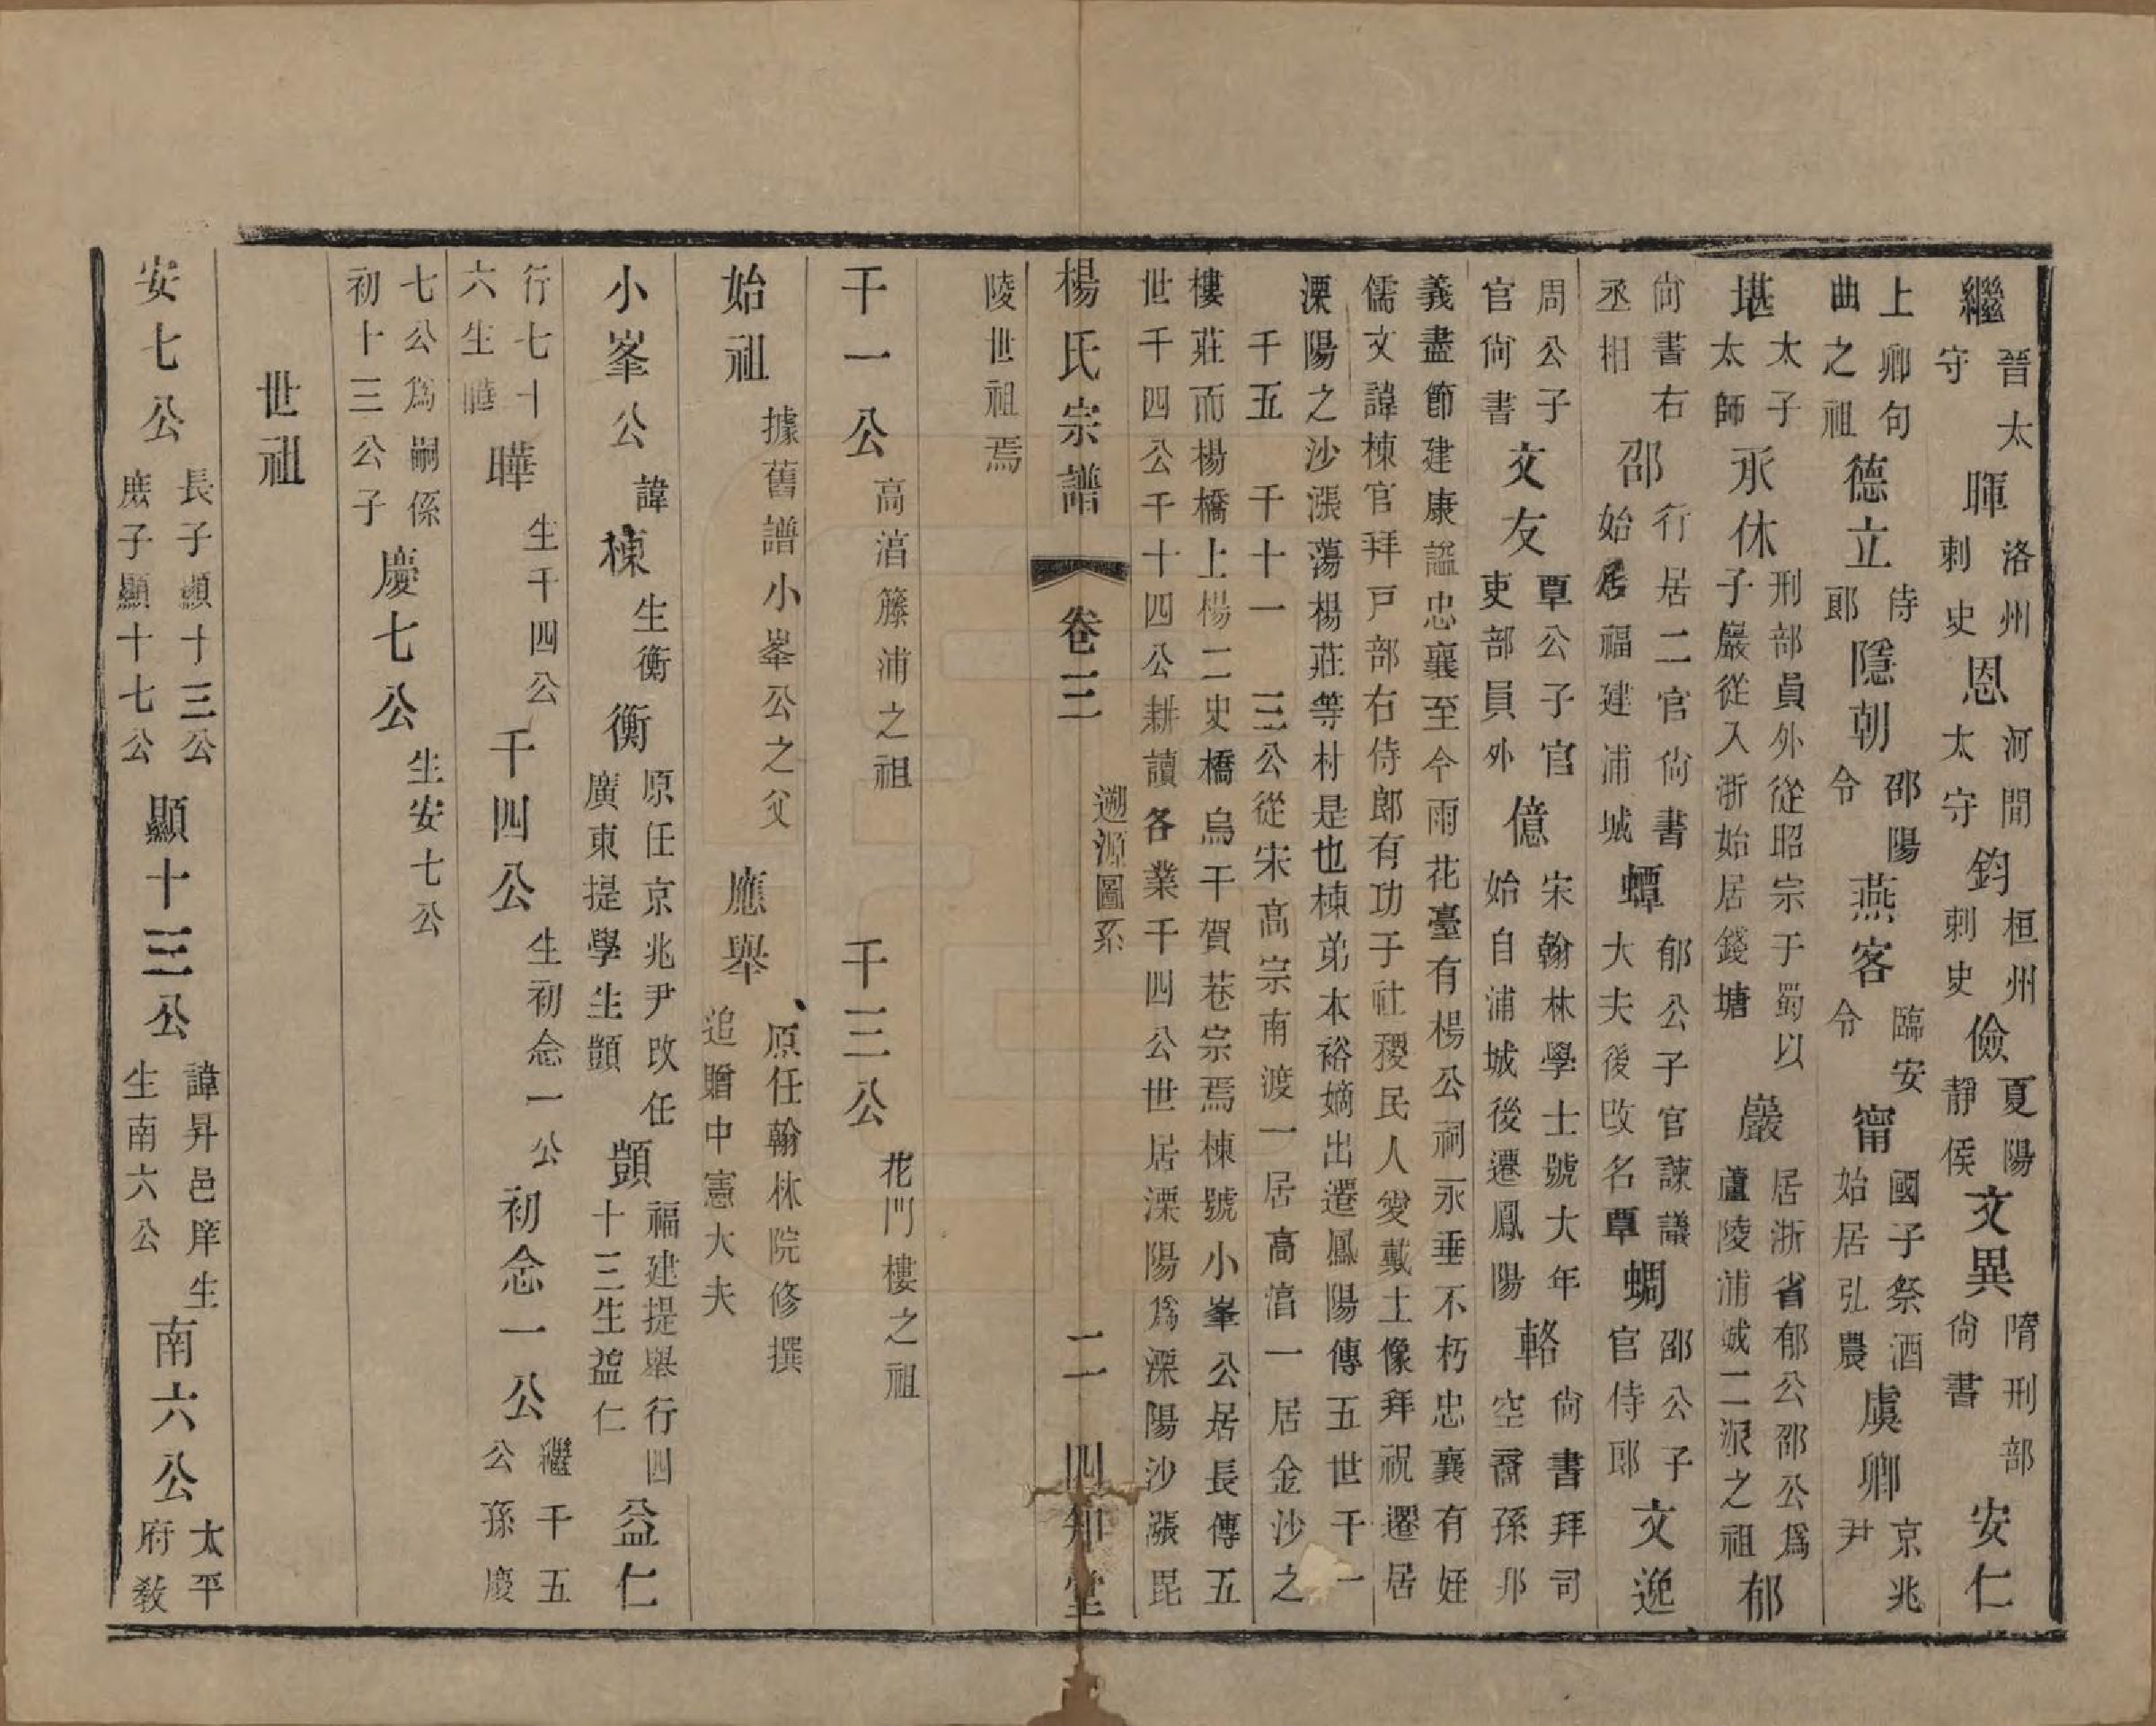 繼晉太守暉洛州刺史恩河間太守鈞桓州刺史儉夏陽靜侯文異隋刑部尙書安仁
上卿句曲之祖德立侍郞隱朝邵陽令燕客臨安令甯國子祭酒始居弘農虞卿京兆尹
堪太子太師承休刑部員外從昭宗于蜀以子巖從入浙始居錢塘巖居浙省郁公邵公爲蘆陵浦城二派之祖郁
尙書右丞相邵行居二官尙書始居福建浦城蟫郁公子官諫議大夫後改名覃蜩邵公子官侍郎文逸
周公子官尙書文友覃公子官吏部員外億宋翰林學士號大年始自浦城後遷鳳陽輅尙書拜司空裔孫邦
義盡節建康謚忠襄至今雨花臺有楊公祠永垂不朽忠襄有姪
儒文諱棟官拜戸部右侍郎有功于社稷民人愛戴土像拜祝遷居
溧陽之沙漲蕩楊莊等村是也棟弟本裕嫡出遷鳳陽傳五世千一
千五 千十一 三公從宋高宗南渡一居高湻一居金沙之
樓莊而楊橋上楊二史橋烏干賀巷宗焉棟號小峯公居長傳五
世千四公千十四公耕讀各業千四公世居溧陽爲溧陽沙漲毘
楊氏宗譜 卷三 遡源圖系 二 四知堂
陵世祖焉
千一公高湻籐浦之祖 千三公花門樓之祖
始祖據舊譜小峯公之父 應舉原任翰林院修撰追贈中憲大夫
小峯公諱棟生衡 衡原任京兆尹改任廣東提學生顗 顗福建提舉行四十三生益仁 益仁
行七十六生曄 曄生千四公 千四公生初念一公 初念一公繼千五公孫慶
七公爲嗣係初十三公子 慶七公生安七公
世祖
安七公長子顯十三公庶子顯十七公 顯十三公諱昇邑庠生生南六公 南六公太平府敎